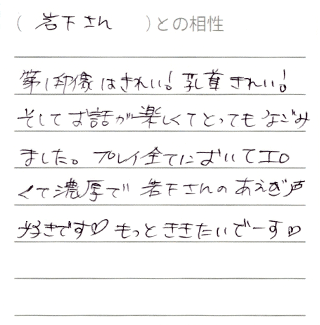 (岩下さん)との相性
第1印象はきれい!乳首きれい!
そしてお話が楽しくてとってもなごみ
ました。プレイ全てにおいてエロ
くて濃厚で 岩下さんのあえぎ声
好きです♡ もっとききたいでーす♡